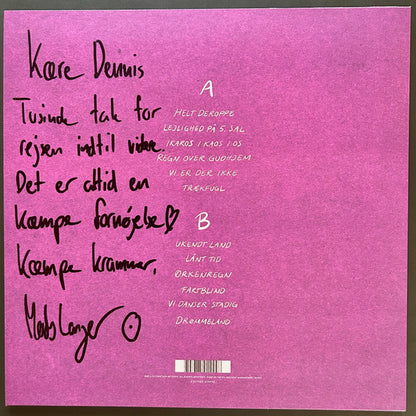 Kære Dennis
Tusinde tak for
rejsen indtil videre.
Det er altid en
Kæmpe fornøjelse
Kæmpe krammer,
Mads Langer
A
HELT DEROPPE
LEJLIGHED PÅ 5. SAL
IKAROS I KAOS I OS
REGN OVER GUDHJEM
VI ER DER IKKE
TRÆKFUGL
B
UKENDT LAND
LÅNT TID
ØRKENREGN
FARTBLIND
VI DANSER STADIG
DRØMMELAND